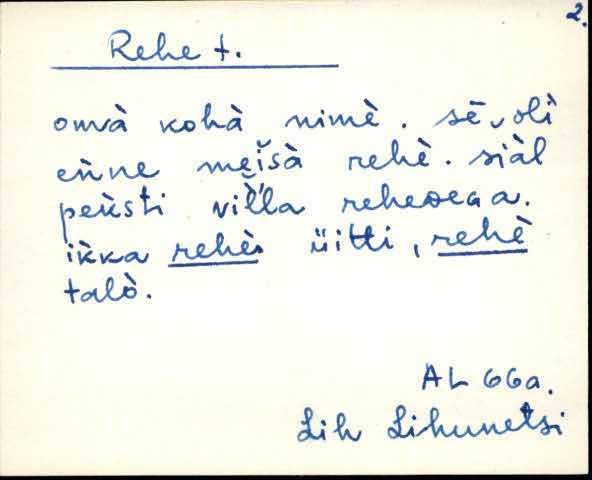 2.
Rehe t.
omà kohà nimè. sē‿olì
eǹne meĭsà rehè. siàl
peksti viĺla reheᴅeɢa.
ìkka rehès üitti, rehè
talò.
AL 66a.
Lih Lihunetsi